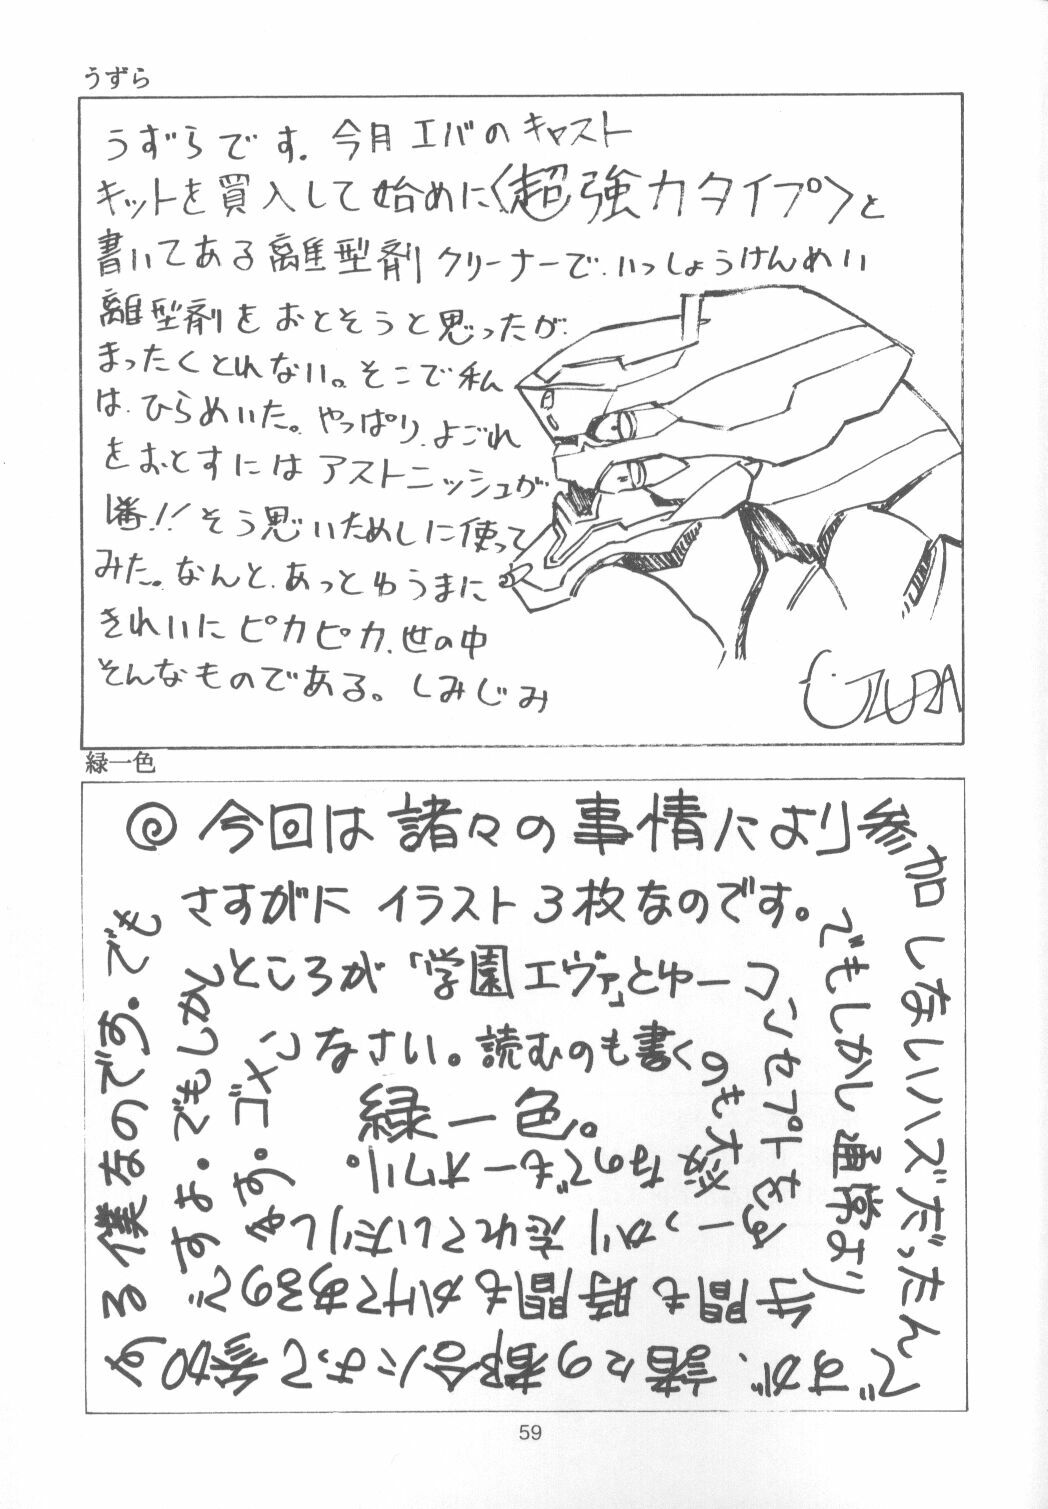 うずら
うずらです。今月エバのキャスト
キットを買入して始めに〈超強力タイプ〉と
書いてある離型剤クリーナーで、いっしょうけんめい
離型剤をおとそうと思ったが、
まったくとれない。そこで私
は、ひらめいた。やっぱり、よごれ
をおとすにはアストニッシュが
1番!!そう思いためしに使って
みた。なんと、あっとゆうまに
きれいにピカピカ、世の中
そんなものである。しみじみ
UZURA
緑一色
◎今回は諸々の事情により参加
しないハズだったん
ですが、諸々の都合によって参加す
る僕なのです。でも
さすがにイラスト3枚なのです。
でもしかし通常より
手間も時間もかけてあるので
すよ。でもしかし
ところが「学園エヴァ」とゆーコ
ンセプトをす
っかり忘れていたりし
ます。ゴメ
ンなさい。読むのも書く
のも大変
なのでもーオワリ。
緑一色。
59